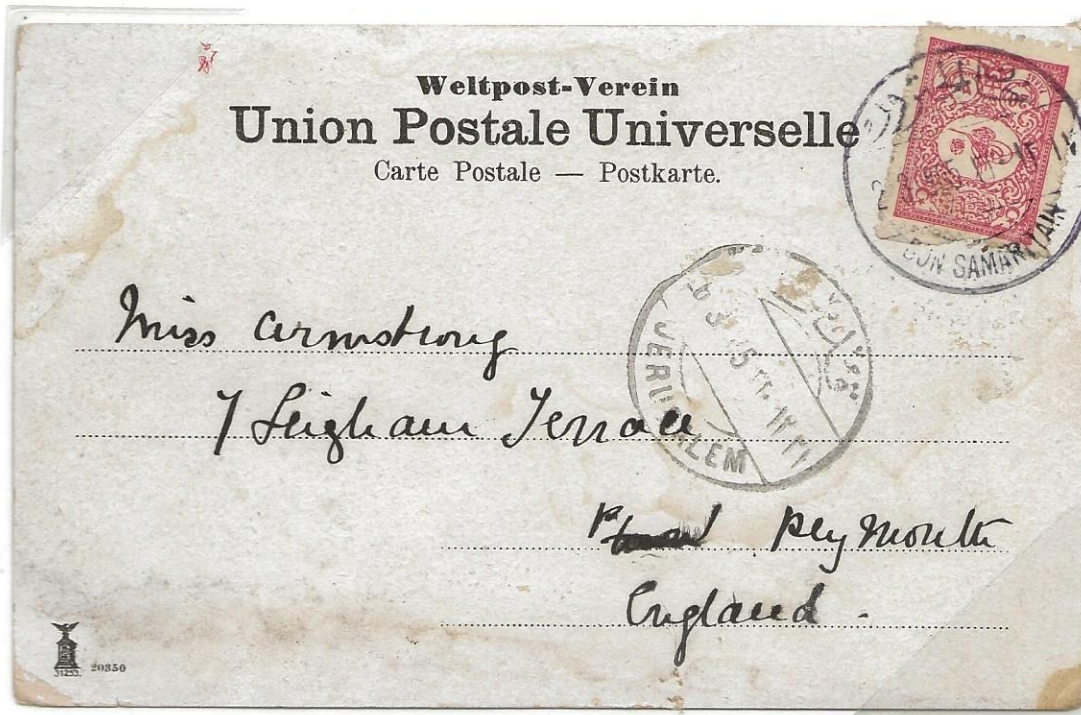 Weltpost-Verein
Union Postale Universelle
Carte Postale — Postkarte.
BON SAMARITAIN
JERUSALEM
Miss Armstrong
7 Leigham Terrace
Plymouth
England.
31253.
20350